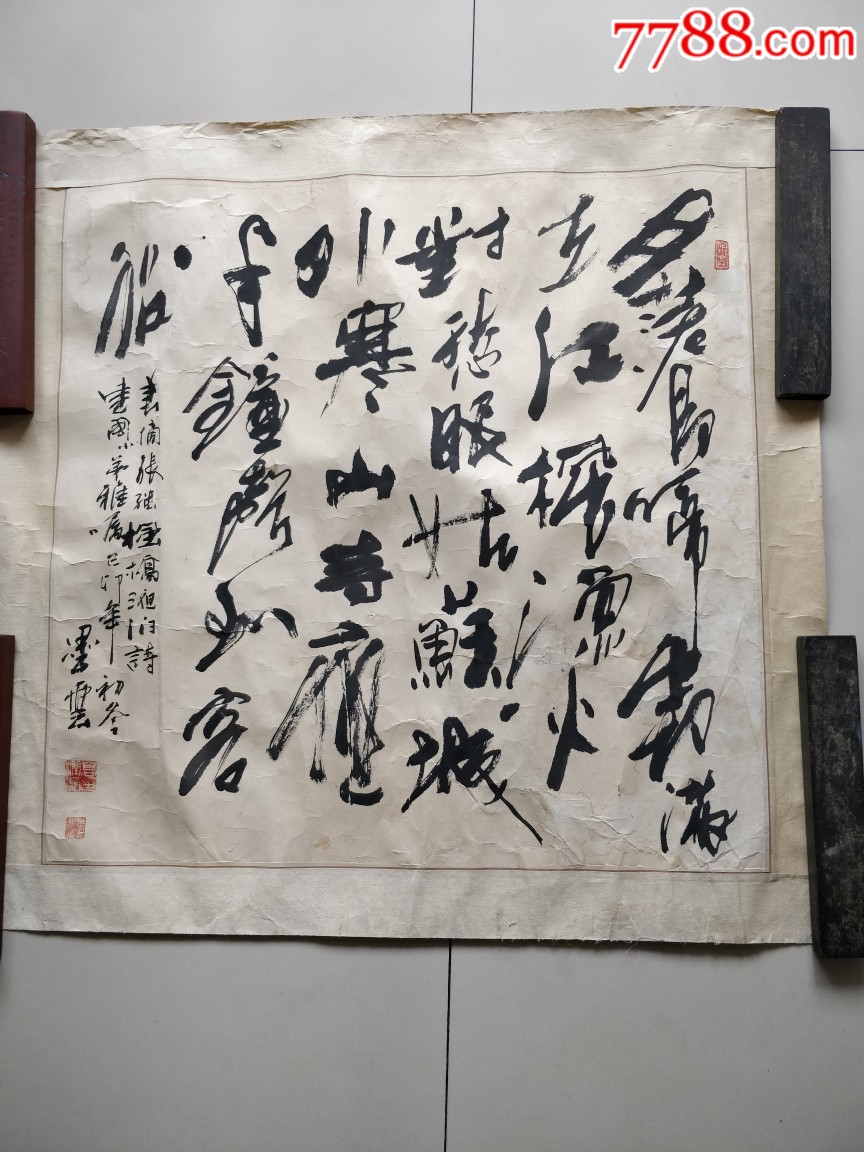 7788.com
月落烏啼霜滿
天江楓漁火
對愁眠姑蘇城
外寒山寺夜
半鐘聲到客
船
書唐張繼楓橋夜泊詩
建國小弟雅屬己卯年初冬